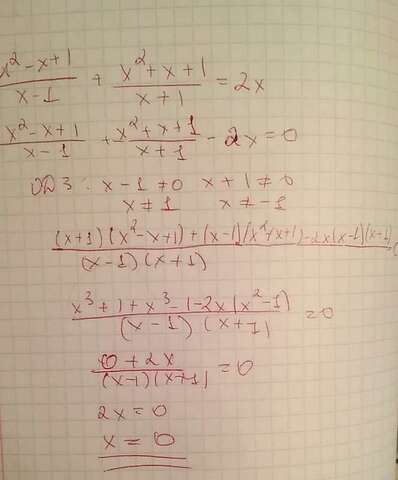 x²-x+1/x-1 + x²+x+1/x+1 = 2x
x²-x+1/x-1 + x²+x+1/x+1 - 2x = 0
ОДЗ: x-1≠0 x+1≠0
x≠1 x≠-1
(x+1)(x²-x+1)+(x-1)(x²+x+1)-2x(x-1)(x+1)/(x-1)(x+1)
x³+1+x³-1-2x(x²-1)/(x-1)(x+1) = 0
0+2x/(x-1)(x+1) = 0
2x=0
x = 0